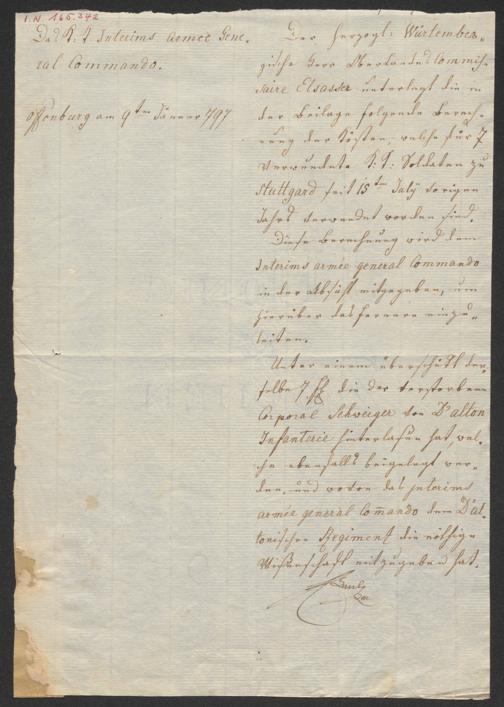 I.N. 166.242
Das K. K. Interims Armée Gene-
ral Commando.
Offenburg am 9ten Jänner 797
Der Herzogl: Würtember-
gische Herr Oberlandes Commis-
saire Elsasser unterlegt die in
der Beilage folgende Berech-
nung der Kösten, welche für 7
verwundete K. K. Soldaten zu
Stuttgard seit 15ten July vorigen
Jahrs verwendet worden sind.
Diese Berechnung wird dem
Interims armée general Commando
in der Absicht mitgegeben, um
hierüber das fernere einzu-
leiten.
Unter einem überschikt der-
selbe 7 f die der verstorbene
Corporal Schweiger von D'alton
Infanterie hinterlassen hat, wel-
che ebenfalls beigelegt wer-
den, und wovon das interims
armée general Commando dem D'al-
tonischen Regiment die nöthige
Wissenschaft mitzugeben hat.